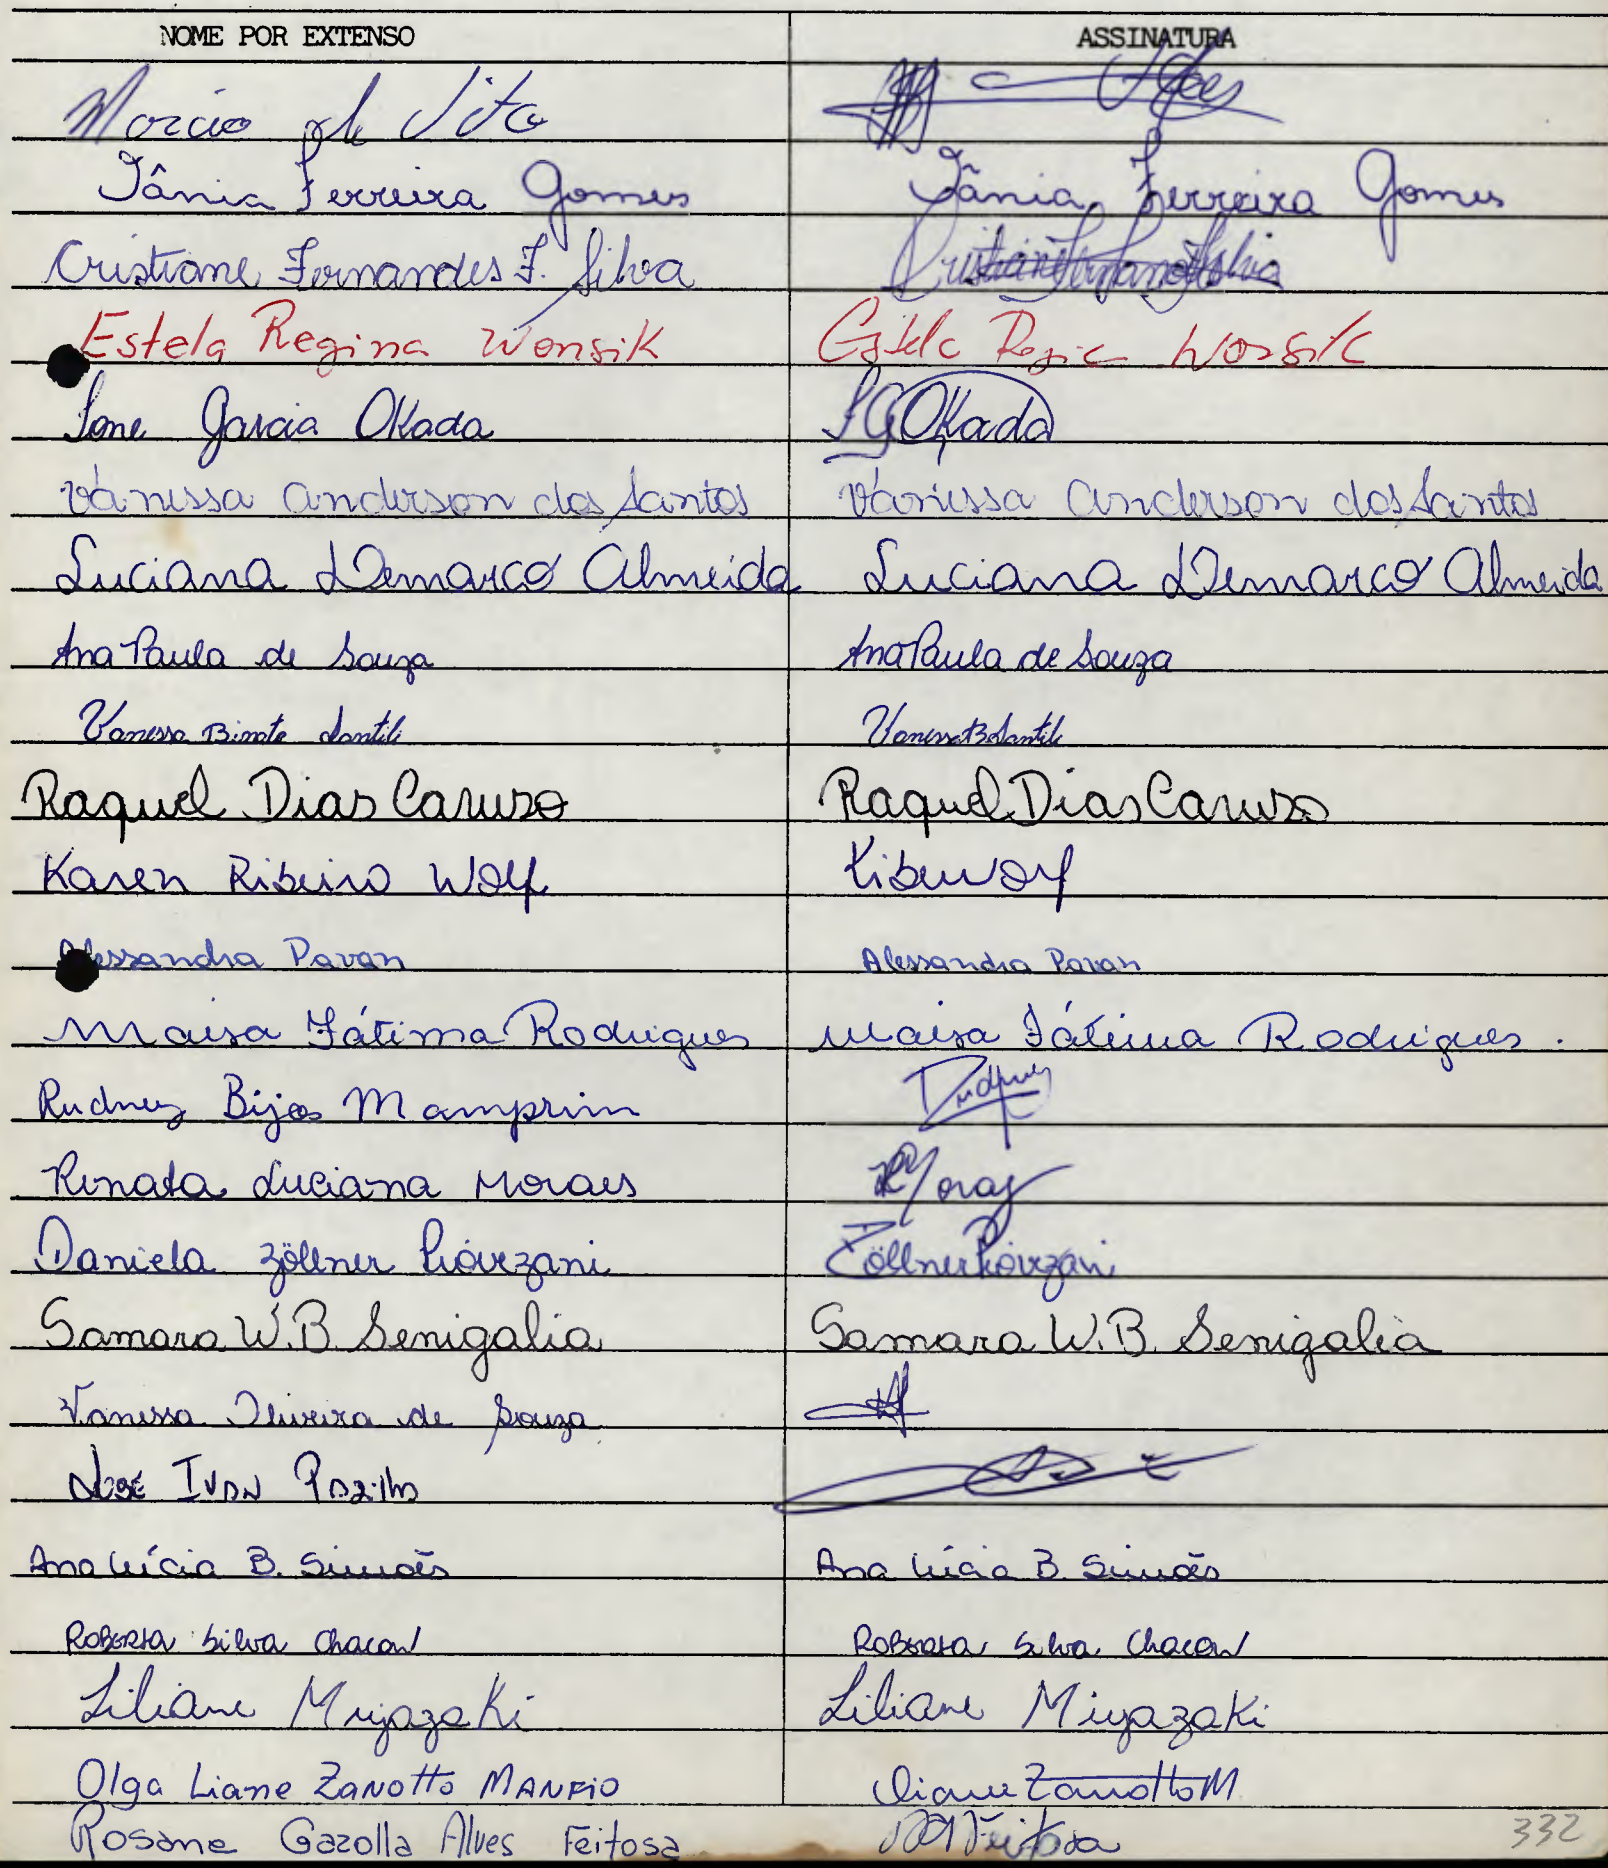 NOME POR EXTENSO ASSINATURA
Marcio de Vito
Tânia Ferreira Gomes Tânia Ferreira Gomes
Cristiane Fernandes F. Silva
Estela Regina Wonsik Estela Regina Wonsik
Ione Garcia Okada IGOkada
Vanessa Anderson dos Santos Vanessa Anderson dos Santos
Luciana Demarco Almeida Luciana Demarco Almeida
Ana Paula de Souza Ana Paula de Souza
Vanessa
Raquel Dias Caruso Raquel Dias Caruso
Karen Ribeiro Wolf
Alessandra Pavan Alessandra Pavan
Maisa Fátima Rodrigues Maisa Fátima Rodrigues.
Rudney Bijos Mamprim Rudney
Renata Luciana Moraes RMoraes
Daniela Zöllner Piovezani Zöllner Piovezani
Samara W.B. Senigalia Samara W.B. Senigalia
Vanessa Oliveira de Souza
José Ivan
Ana Lúcia B. Simões Ana Lúcia B. Simões
Roberta Silva Chacon Roberta Silva Chacon
Liliane Miyazaki Liliane Miyazaki
Olga Liane Zanotto MANFIO Liane Zanotto M
Rosane Gazolla Alves Feitosa Feitosa
332